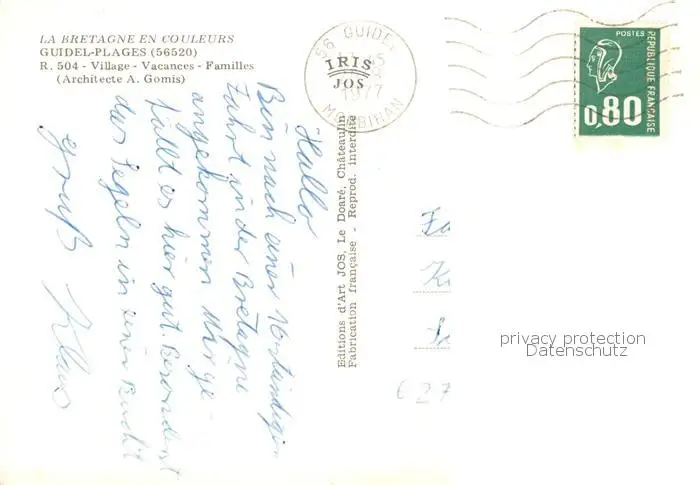 LA BRETAGNE EN COULEURS
GUIDEL-PLAGES (56520)
R. 504 - Village - Vacances - Familles
(Architecte A. Gomis)
Hallo
Bin nach einer 16-stündigen
Fahrt in der Bretagne
angekommen
gefällt es hier gut. Besonders
das Segeln in einer Bucht
Gruß Klaus
Editions d'Art JOS, Le Doaré, Châteaulin
Fabrication française - Reprod. interdite
56 GUIDEL
IRIS
JOS
1977
MORBIHAN
POSTES
REPUBLIQUE FRANÇAISE
0,80
627
privacy protection
Datenschutz